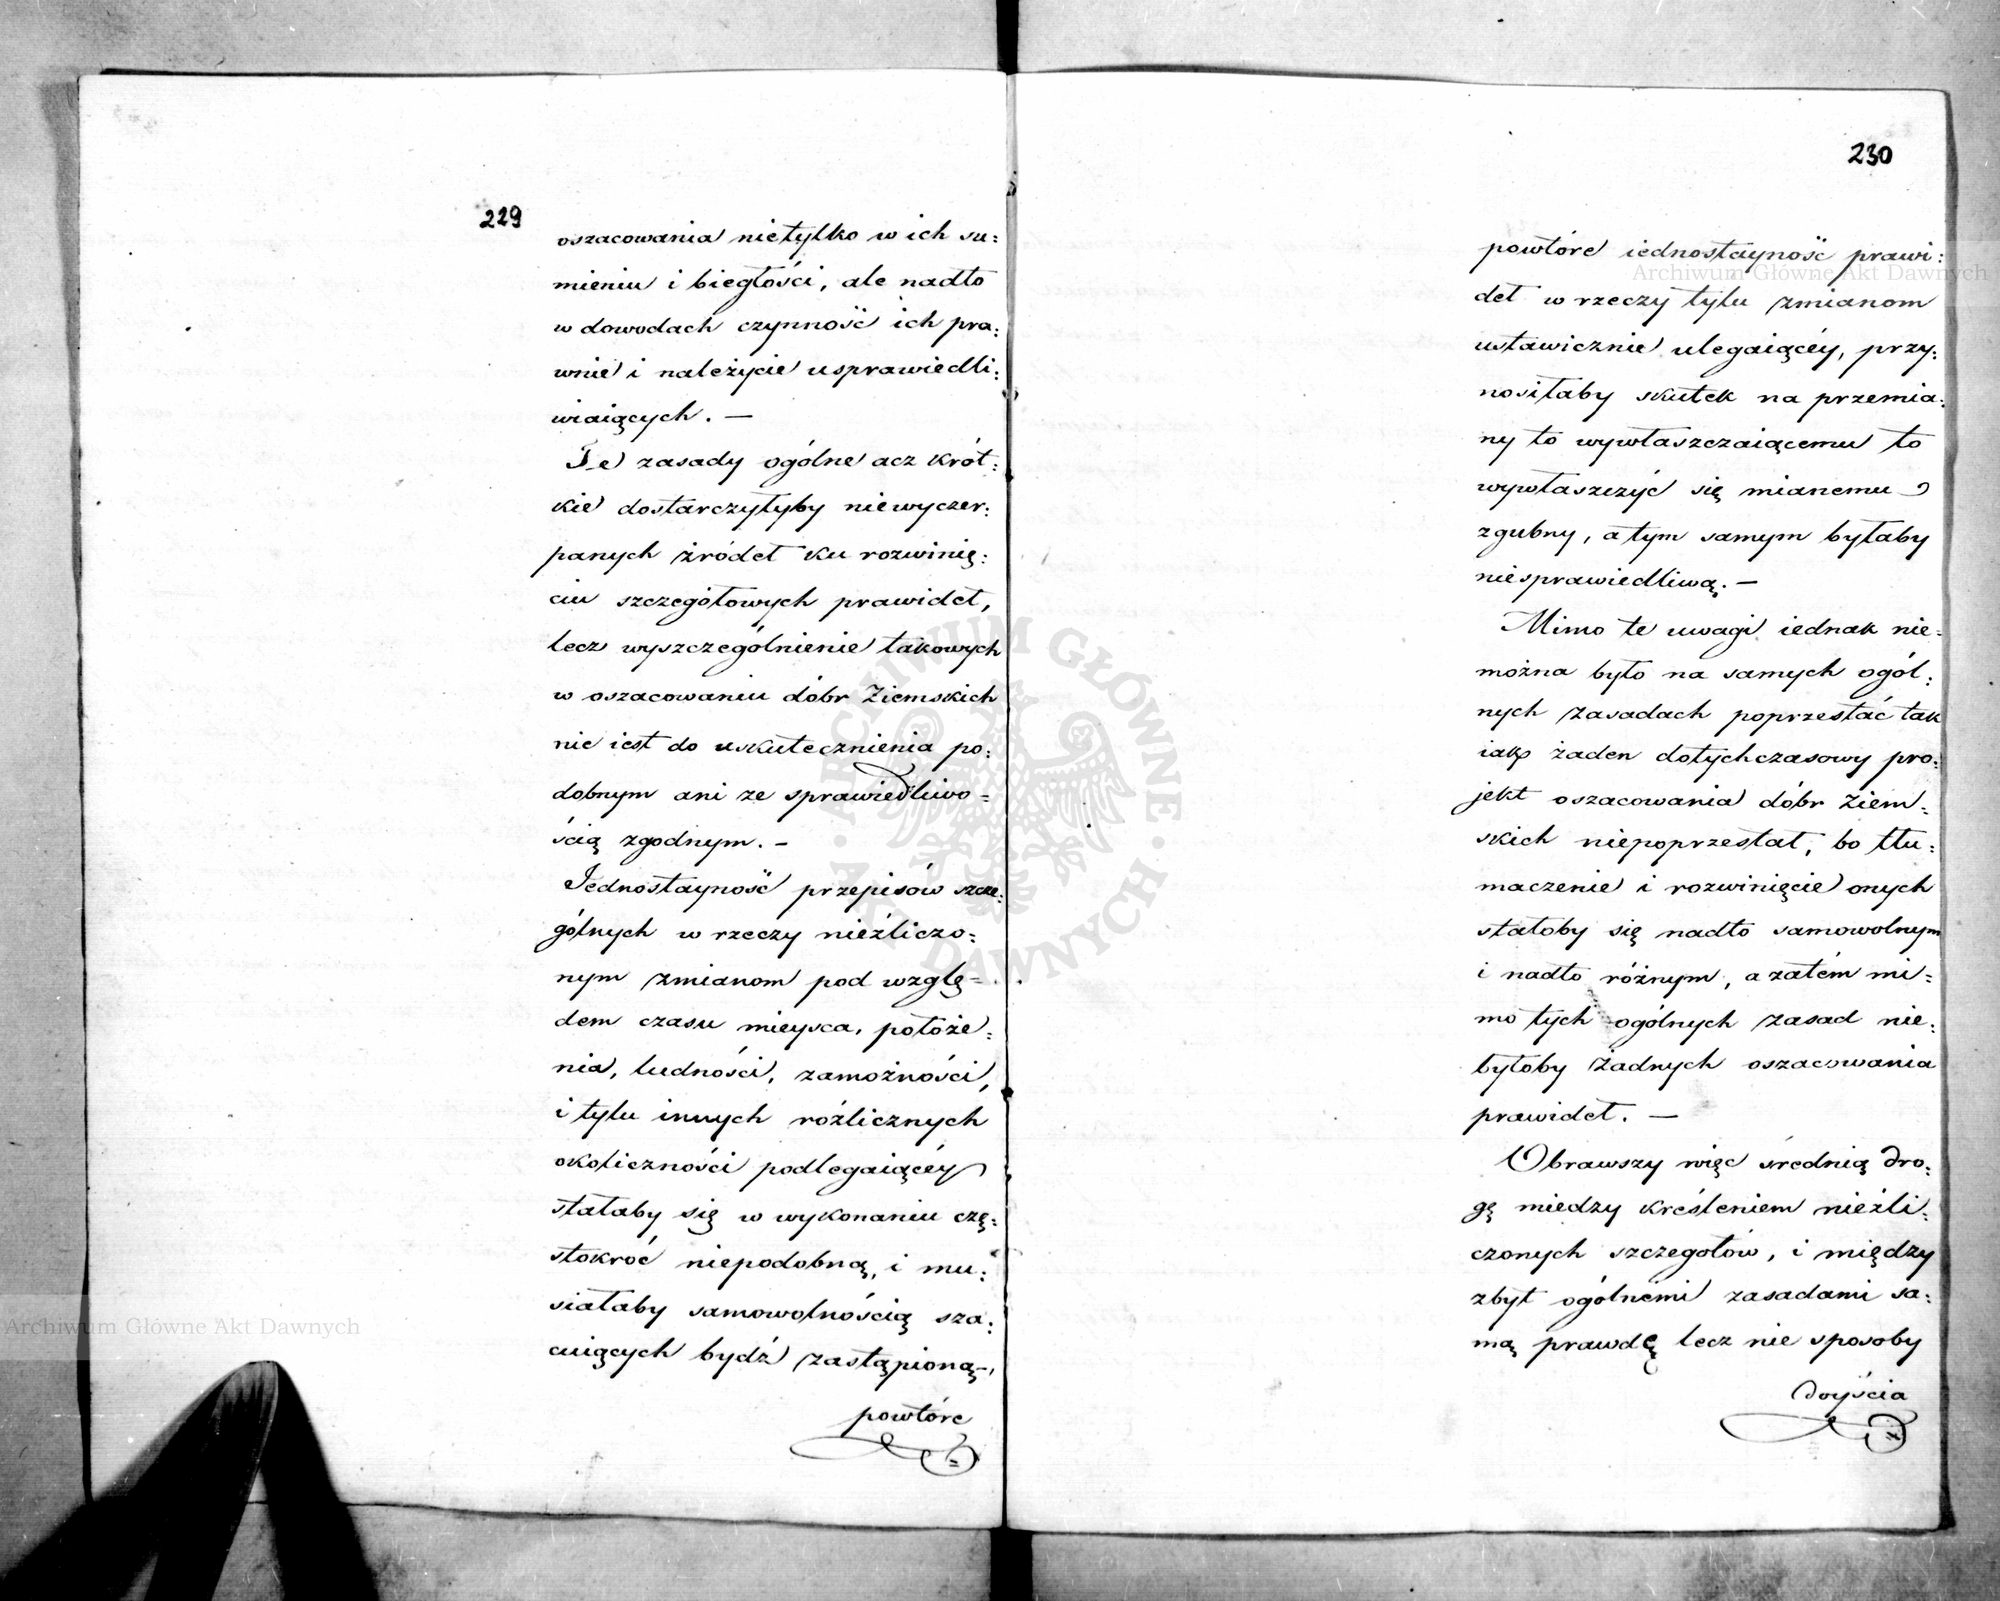 229
oszacowania nietylko w ich su:
mieniu i biegłości, ale nadto
w dowodach czynność ich pra:
wnie i należycie usprawiedli:
wiaiących. —
Te zasady ogólne acz krót:
kie dostarczyłyby niewyczer:
panych źródeł ku rozwinię:
ciu szczegółowych prawideł,
lecz wyszczególnienie takowych
w oszacowaniu dóbr Ziemskich
nie iest do uskutecznienia po:
dobnym ani ze sprawiedliwo=
ścią zgodnym. —
Jednostayność przepisów szcze:
gólnych w rzeczy nieźliczo:
nym zmianom pod wzglę=
dem czasu mieysca, położe:
nia, ludności, zamożności,
i tylu innych roźlicznych
okoliczności podlegaiącéy
stałaby się w wykonaniu czę:
stokroć niepodobną, i mu:
siałaby samowolnością sza:
cuiących bydź zastąpioną,
powtóre
230
powtóre iednostayność prawi:
deł w rzeczy tylu zmianom
ustawicznie ulegaiącéy, przy:
nosiłaby skutek na przemia:
ny to wywłaszczaiącemu to
wywłaszczyć się mianemu
zgubny, a tym samym byłaby
niesprawiedliwą. —
Mimo te uwagi iednak nie:
można było na samych ogól:
nych zasadach poprzestać tak
iak żaden dotychczasowy pro:
jekt oszacowania dóbr Ziem:
skich niepoprzestał, bo tłu:
maczenie i rozwinięcie onych
stałoby się nadto samowolnym
i nadto różnym, a zatém mi=
mo tych ogólnych zasad nie:
byłoby żadnych oszacowania
prawideł. —
Obrawszy więc średnią dro:
gę miedzy kreśleniem nieźli:
czonych szczegołów, i między
zbyt ogólnemi zasadami sa:
mą prawdę lecz nie sposoby
doyścia
Archiwum Główne Akt Dawnych
Archiwum Główne Akt Dawnych
ARCHIWUM GŁÓWNE · AKT DAWNYCH ·